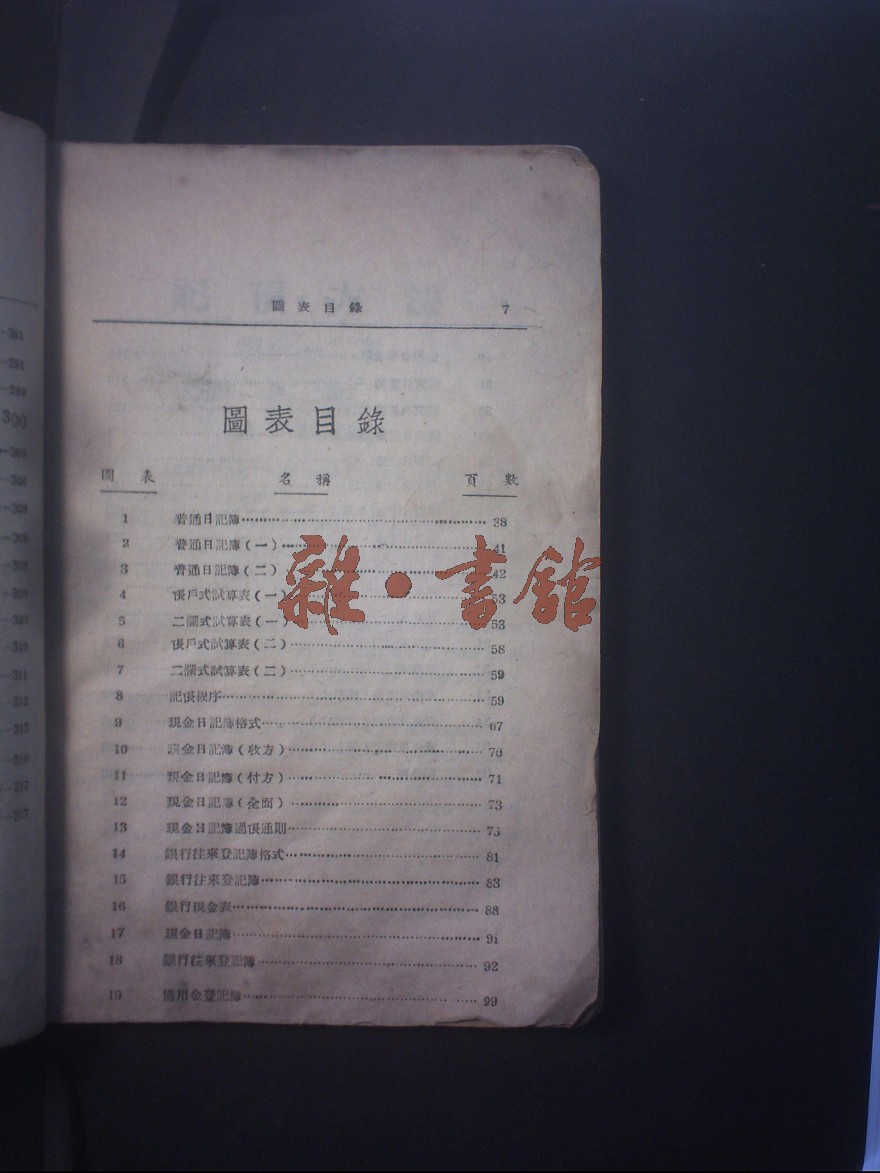 圖表目錄 7
圖表目錄
圖表 名稱 頁數
1 普通日記簿 38
2 普通日記簿(一) 41
3 普通日記簿(二) 42
4 帳戶式試算表(一) 53
5 二欄式試算表(一) 53
6 帳戶式試算表(二) 58
7 二欄式試算表(二) 59
8 記帳程序 59
9 現金日記簿格式 67
10 現金日記簿(收方) 70
11 現金日記簿(付方) 71
12 現金日記簿(全面) 73
13 現金日記簿過帳通則 75
14 銀行往來登記簿格式 81
15 銀行往來登記簿 83
16 銀行現金表 88
17 現金日記簿 91
18 銀行往來登記簿 92
19 備用金登記簿 99
雜·書館
281
300
311
312
317
317